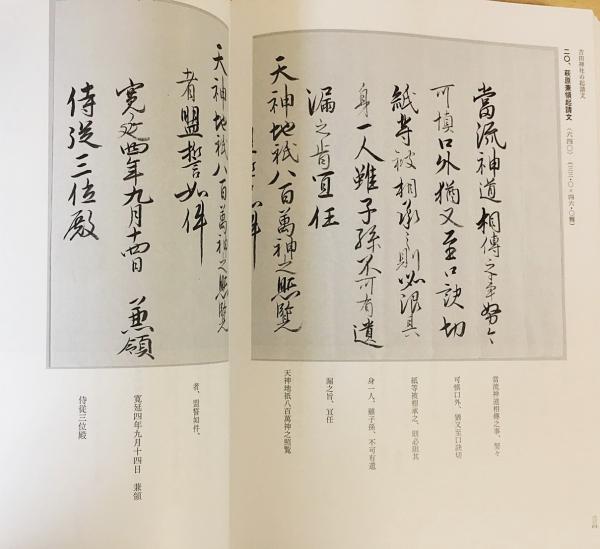 吉田神社の起請文
二〇、萩原兼領起請文(六四〇)(三三・〇×四六・〇糎)
當流神道相傳之事努々
可慎口外猶又至口訣切
紙等被相承之則必限其
身一人雖子孫不可有遺
漏之旨宜任
天神地祇八百萬神之照覧
天神地祇八百萬神之照覧
者盟誓如件
寛延四年九月十四日 兼領
侍従三位殿
當流神道相傳之事、努々
可慎口外、猶又至口訣切
紙等被相承之、則必限其
身一人、雖子孫、不可有遺
漏之旨、宜任
天神地祇八百萬神之照覧
者、盟誓如件、
寛延四年九月十四日 兼領
侍従三位殿